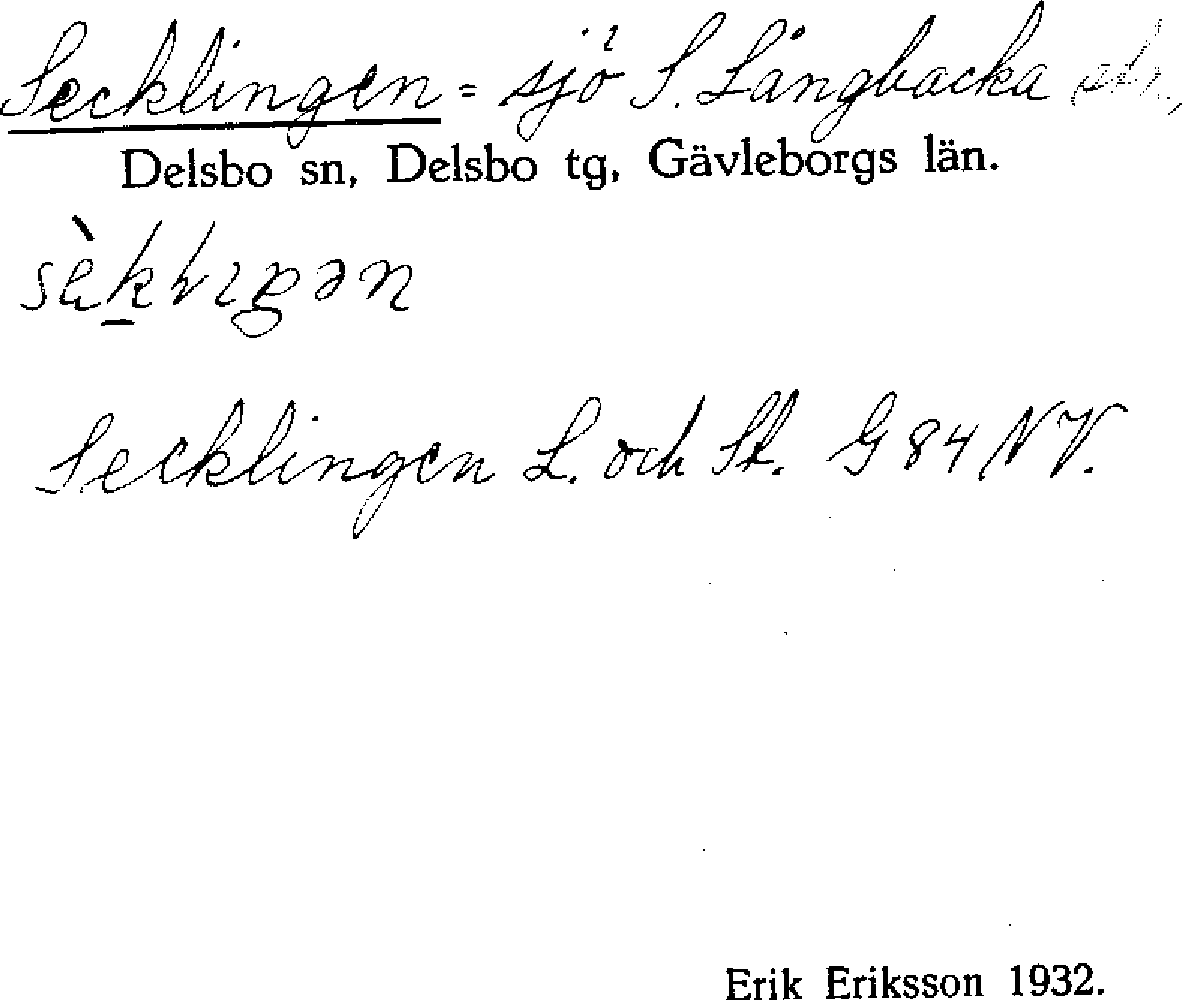 Secklingen = sjö i S. Långbacka
Delsbo sn, Delsbo tg, Gävleborgs län.
Secklingen L. och St. G 84 NV.
Erik Eriksson 1932.